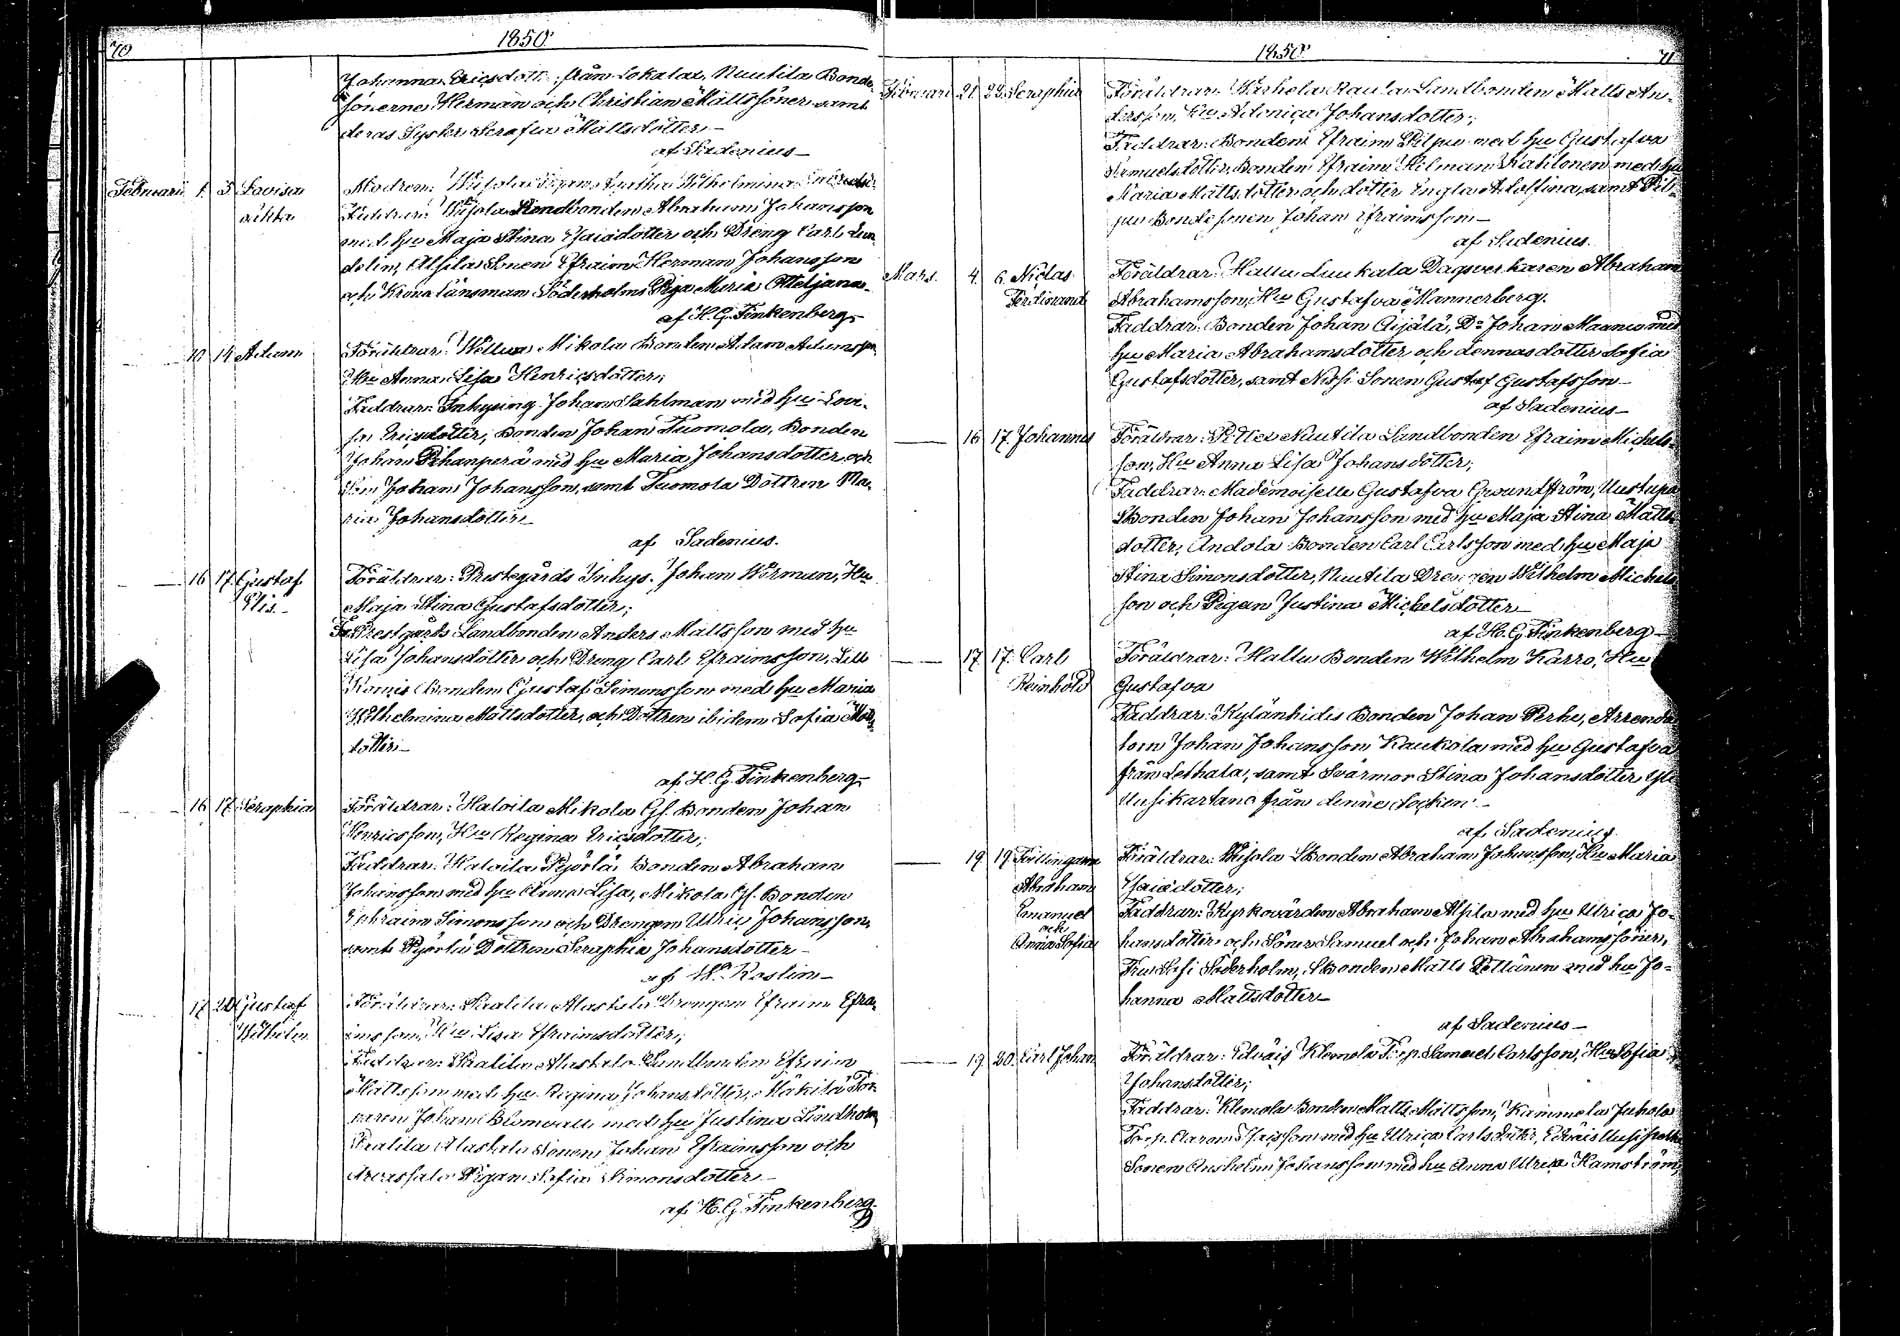 70
1850.
Johanna Ericsdotter från Lokalax, Nuutila Bonde
sönerne Herman och Christian Mattssöner samt
deras Syster Serafia Mattsdotter
af Sadenius
Februarii 1. 3. Lovisa Modren: Pigan Agatha Wilhelmina
oäkta Faddrar: Bonden Abraham Johansson
med hu Maja Stina Esaiædotter och Dreng Carl Lun
delin, Alsila Sonen Efraim Herman Johansson
och Krono länsman Söderholms Piga Maria Ottiljana
af H. G. Finkenberg
10 14 Adam Föräldrar: Mikola Bonden Adam Adamsson
Hu Anna Lisa Henricsdotter;
Faddrar: Inhysing Johan Sahlman med hu Lovi-
sa Ericsdotter, Bonden Johan Tuomola, Bonden
Johan Pihanperä med hu Maria Johansdotter och
Son Johan Johansson, samt Tuomola Dottren Ma-
ria Johansdotter
af Sadenius.
16 17 Gustaf Föräldrar: Prestegårds Inhys. Johan Werman, Hu
Elis Maja Stina Gustafsdotter;
Fa: Prestgårds Landbonden Anders Mattsson med hu
Lisa Johansdotter och Dreng Carl Efraimsson, Lill
Komis Bonden Gustaf Simonsson med hu Maria
Wilhelmina Mattsdotter, och Dottren ibidem Sofia Matts
dotter
af H. G. Finkenberg
16 17 Seraphia Föräldrar: Haloila Mikola Gf. Bonden Johan
Henricsson, Hu Regina Ericsdotter;
Faddrar: Haloila Pijörlä Bonden Abraham
Johansson med hu Anna Lisa, Mikola Gf. Bonden
Ephraim Simonsson och Drengen Ulric Johansson,
samt Pijörlä Dottren Seraphia Johansdotter
af W. Roslin
17 20 Gustaf Föräldrar: Alastalo Drengen Efraim Efra-
Wilhelm imsson, Hu Lisa Efraimsdotter;
Faddrar: Alastalo Landbonden Efraim
Mattsson med hu Regina Johansdotter, Mäkilä Tor-
paren Johan Blomvall med hu Justina Lindholm,
Alastalo Sonen Johan Efraimsson och
Pigan Sofia Simonsdotter
af H. G. Finkenberg
1850.
71
Februarii 21. 23. Seraphia Föräldrar: Raula Landbonden Matts An-
dersson, Hu Adoniça Johansdotter;
Faddrar: Bonden Efraim Pilpu med hu Gustafva
Samuelsdotter, Bonden Efraim med hu
Maria Mattsdotter och dotter Engla Adolfina, samt Pil-
pu Bondesonen Johan Efraimsson
af Sadenius.
Mars. 4. 6. Niclas Föräldrar: Hallu Luukala Dagsverkaren Abraham
Ferdinand Abrahamsson, Hu Gustafva Mannerberg.
Faddrar: Bonden Johan Äijälä, Do Johan Maunu med
hu Maria Abrahamsdotter och dennas dotter Sofia
Gustafsdotter, samt Nissi Sonen Gustaf Gustafsson
af Sadenius
16 17. Johannes Föräldrar: Nuutila Landbonden Efraim Michels-
son, Hu Anna Lisa Johansdotter;
Faddrar: Mademoiselle Gustafva Grundström, Uustupa
Bonden Johan Johansson med hu Maja Stina Matts-
dotter, Andola Bonden Carl Carlsson med hu Maja
Stina Simonsdotter, Nuutila Drengen Wilhelm Michels
son och Pigan Justina Michelsdotter
af H. G. Finkenberg
17 17. Carl Föräldrar: Hallu Bonden Wilhelm Karro, Hu
Reinhold Gustafva
Faddrar: Kylänhidis Bonden Johan Perhe, Arrenda
torn Johan Johansson Kaukola med hu Gustafva
från Lethala, samt Svärmor Stina Johansdotter, Yli
Uusikartano från denne socken
af Sadenius.
19 19. Tvillingarne Föräldrar: Bonden Abraham Johansson, Hu Maria
Abraham Esaiædotter;
Emanuel Faddrar: Kyrkovärden Abraham Alsila med hu Ulrica Jo-
och
Anna Sofia hansdotter och Söner Samuel och Johan Abrahamssöner,
Fru Söderholm, Bonden Matts med hu Jo-
hanna Mattsdotter
af Sadenius
19. 20. Carl Johan Föräldrar: Edväis Klemola Torp. Samuel Carlsson, Hu Sofia
Johansdotter;
Faddrar: Klemola Bonden Matts Mattsson, Kammela Juhola
Torp. Aaron med hu Ulrica Carlsdotter, Edväis
Sonen Anshelm Johansson med hu Anna Ulrica Hamström,